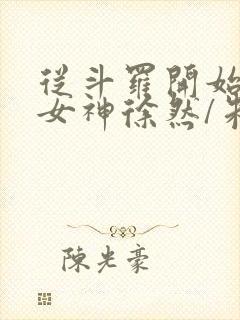 從斗羅開始
女神徐然/朱
陳光豪